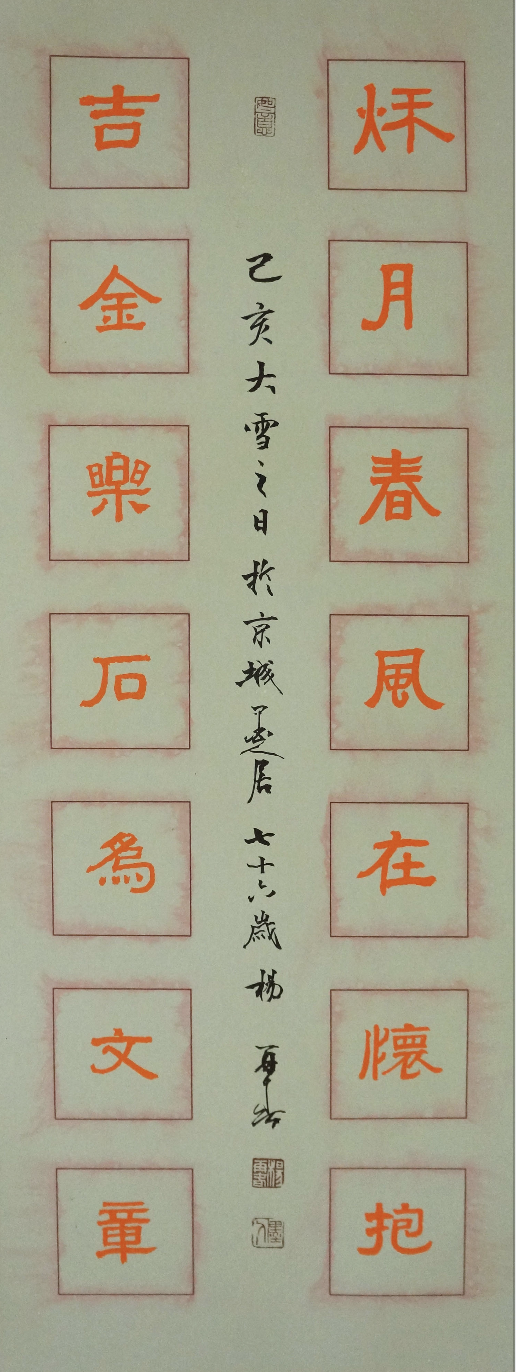 秌月春風在懷抱
己亥大雪之日於京城居七十六歲楊
吉金樂石為文章